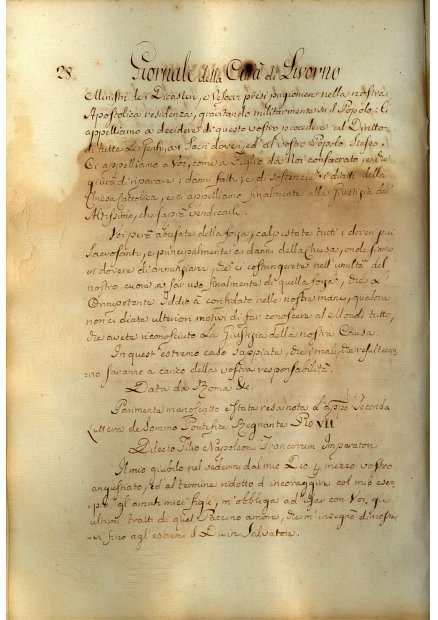 28 Giornale della Città di Livorno
Ministri de Dicasteri, e Vescovi presi prigionieri nella nostra
Apostolica residenza, gravitando militarmente su il Popolo: Ci
appelliamo a decidere di questo vostro procedere al Diritto
di tutte le Genti, ai Sacri doveri, ed al vostro Popolo stesso.
Ci appelliamo a Voi, come a Figlio da Noi consacrato, che
giurò di riparare i danni fatti, e di sostenere i diritti della
Chiesa Cattolica, e ci appelliamo finalmente alla Giustizia dell'
Altissimo, che saprà
Voi però abusate della forza, calpestate tutti i doveri più
Sacrosanti, e principalmente a danni della Chiesa, onde farne
un dovere di annunziarvi, che ci costringerete nell'umiltà del
nostro cuore a far uso finalmente di quella forza, che l'
Onnipotente Iddio à confidato nelle nostre mani, qualora
non ci diate ulteriori motivi di far conoscere al Mondo tutto,
che avete riconosciuto La Giustizia della nostra Causa.
In quest'estremo caso sappiate, che i mali, che resulteran-
no saranno a carico della vostra responsabilità.
Data da Roma &c.
Parimente manoscritto è stata resa nota l'app.o Seconda
Lettera de Sommo Pontefice Regnante Pio VII
Dilecto Filio Napoleoni Francorum Imperatori
Il mio giubilo nel vedermi dal mio Dio p mezzo vostro
angustiato, ed al termine ridotto d'incoraggir col mio esem-
pio gl'amati miei figli, m'obbliga ad usar con Voi gli
ultimi tratti di quel Paterno amore, che m'insegnò di mostra-
re fino agli estremi il Divin Salvatore.